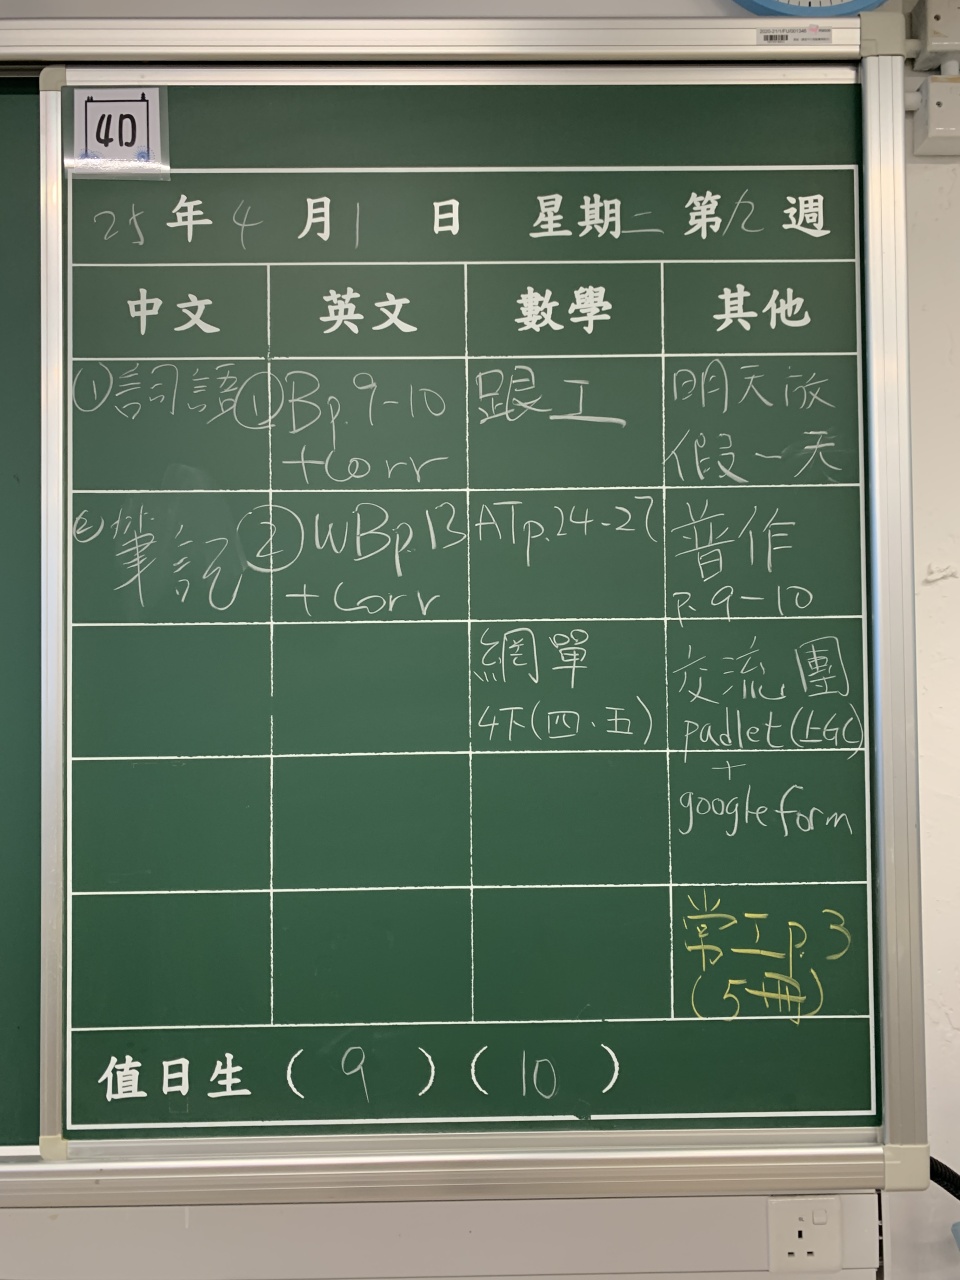 4D
25年4月1日 星期二 第九週
中文 英文 數學 其他
①詞語 ①Bp.9-10 跟工 明天放
+Corr 假一天
②筆記 ②WBp.13 ATp.24-27 普作
+Corr p.9-10
網單 交流團
4下(四、五) padlet(上GC)
+
google form
常工p.3
(5冊)
值日生 (9)(10)